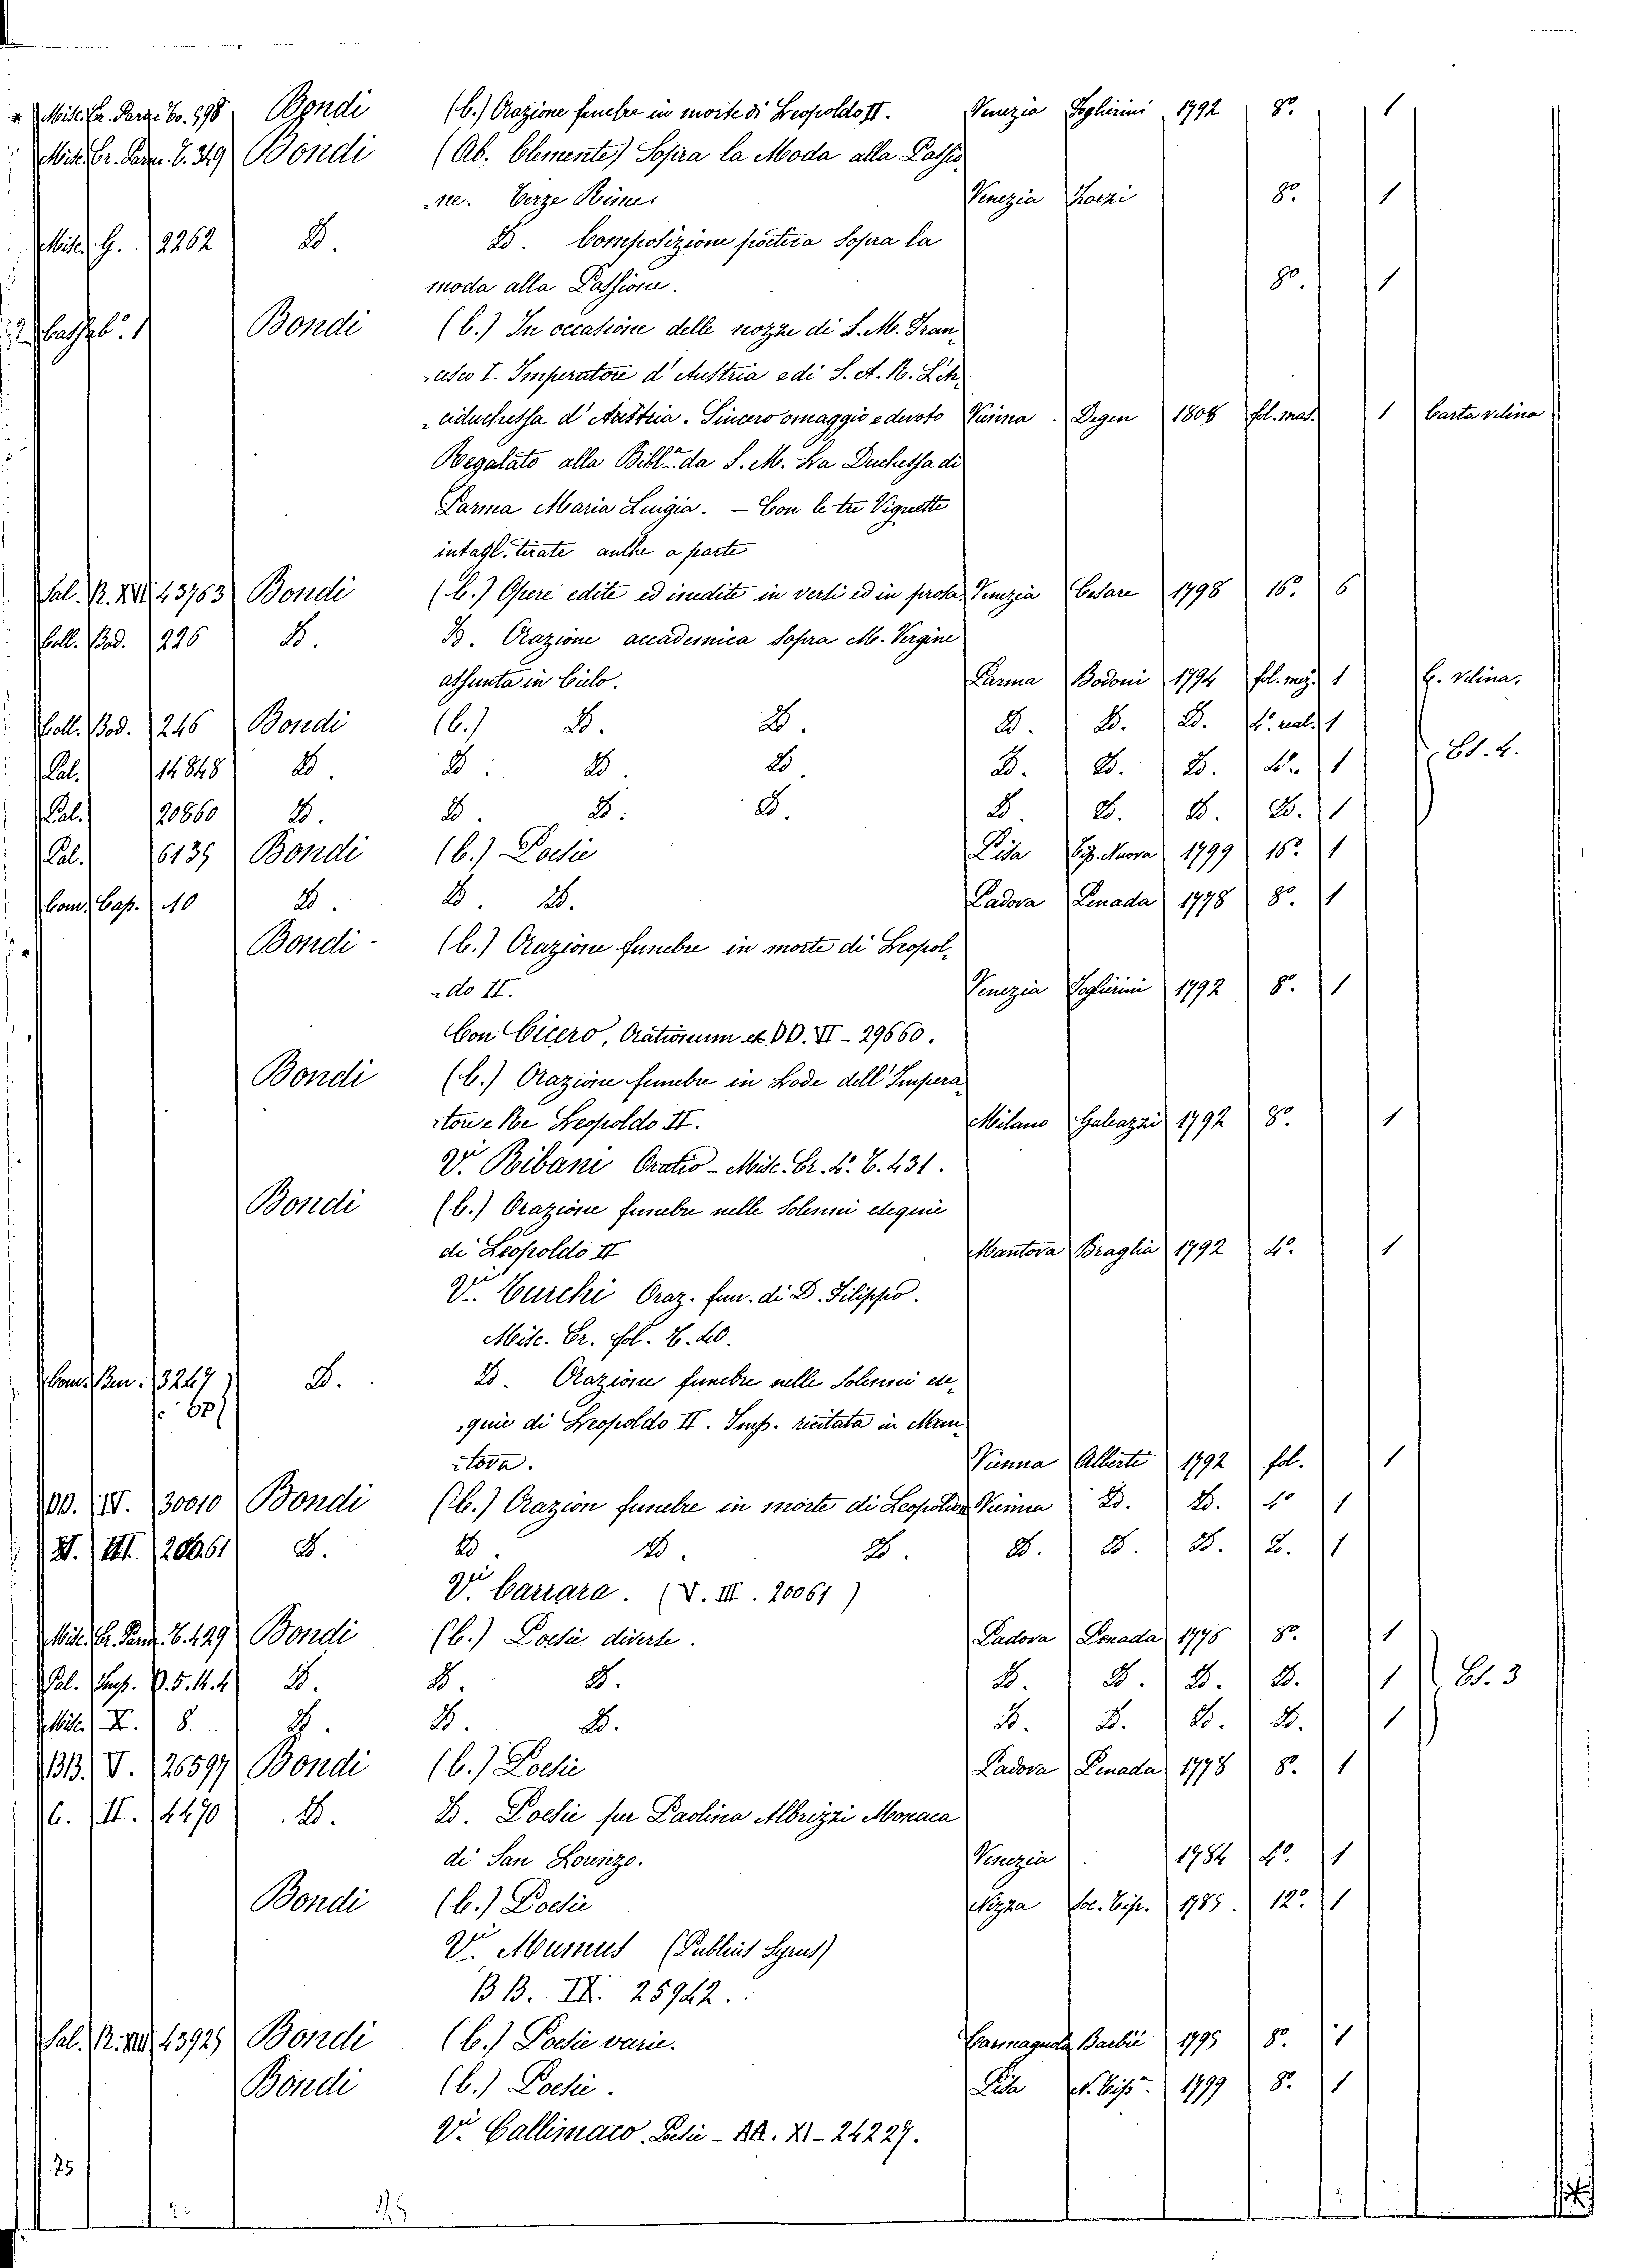 Misc. Er. Parm. To. 198 Bondi (C.) Orazione funebre in morte di Leopoldo II. Venezia Foglierini 1792 8º. 1
Misc. Er. Parm. T. 319 Bondi (Ab. Clemente) Sopra la Moda alla Passio
ne. Terze Rime. Venezia 8º. 1
Misc. G. 2262 D. D. Composizione poetica sopra la
moda alla Passione. 8º. 1
Bondi (C.) In occasione delle nozze di S. M. Fran
cesco I. Imperatore d'Austria e di S. A. R. L'Ar
ciduchessa d'Austria. Sincero omaggio e devoto Vienna. Degen 1808 fol. mas. 1 Carta velina
Regalato alla Bibl.ª da S. M. La Duchessa di
Parma Maria Luigia. – Con le tre Vignette
intagl. tirate anche a parte
Sal. R. XVI. 43763 Bondi (C.) Opere edite ed inedite in versi ed in prosa. Venezia Cesare 1798 16º. 6
Coll. Bod. 226 D. D. Orazione accademica sopra M. Vergine
assunta in Cielo. Parma Bodoni 1794 fol. mag. 1 C. velina.
Coll. Bod. 246 Bondi (C.) D. D. D. D. D. 4º. real. 1
Pal. 14848 D. D. D. D. D. D. D. D. 1 Es. 4.
Pal. 20860 D. D. D. D. D. D. D. D. 1
Pal. 6135 Bondi (C.) Poesie Pisa Tip. Nuova 1799 16º. 1
Com. Cap. 10 D. D. D. Padova Penada 1778 8º. 1
Bondi - (C.) Orazione funebre in morte di Leopol
do II. Venezia Foglierini 1792 8º. 1
Con Cicero, Oratiorum et. DD. VI - 29660.
Bondi (C.) Orazione funebre in Lode dell'Impera
tore e Re Leopoldo II. Milano Galeazzi 1792 8º. 1
V. Ribani Oratio - Misc. Er. 4º. T. 431.
Bondi (C.) Orazione funebre nelle solenni esequie
di Leopoldo II Mantova Braglia 1792 4º. 1
V. Turchi Oraz. fun. di D. Filippo.
Misc. Er. fol. T. 40.
3247 D. D. Orazione funebre nelle solenni ese
quie di Leopoldo II. Imp. recitata in Man
tova. Vienna Alberti 1792 fol. 1
DD. IV. 30010 Bondi (C.) Orazion funebre in morte di Leopoldo Vienna D. D. 4º 1
V. III. 20061 D. D. D. D. D. D. D. D. 1
V. Carrara. (V. III. 20061)
Misc. Er. Parm. T. 429 Bondi (C.) Poesie diverse. Padova Penada 1776 8º. 1
Pal. D. D. D. D. D. D. D. 1 Es. 3
Misc. X. 8 D. D. D. D. D. D. D. 1
BB. V. 26597 Bondi (C.) Poesie Padova Penada 1778 8º. 1
C. II. 4470 D. D. Poesie per Paolina Albrizzi Monaca
di San Lorenzo. Venezia 1784 4º. 1
Bondi (C.) Poesie Nizza Soc. Tip. 1785. 12º. 1
V. Mumus (Publius Syrus)
BB. IX. 25942.
Sal. 43925 Bondi (C.) Poesie varie. Carmagnola Barbiè 1795 8º. 1
Bondi (C.) Poesie. Pisa N. Tip. 1799 8º. 1
V. Callimaco. Poesie - AA. XI - 24227.
25